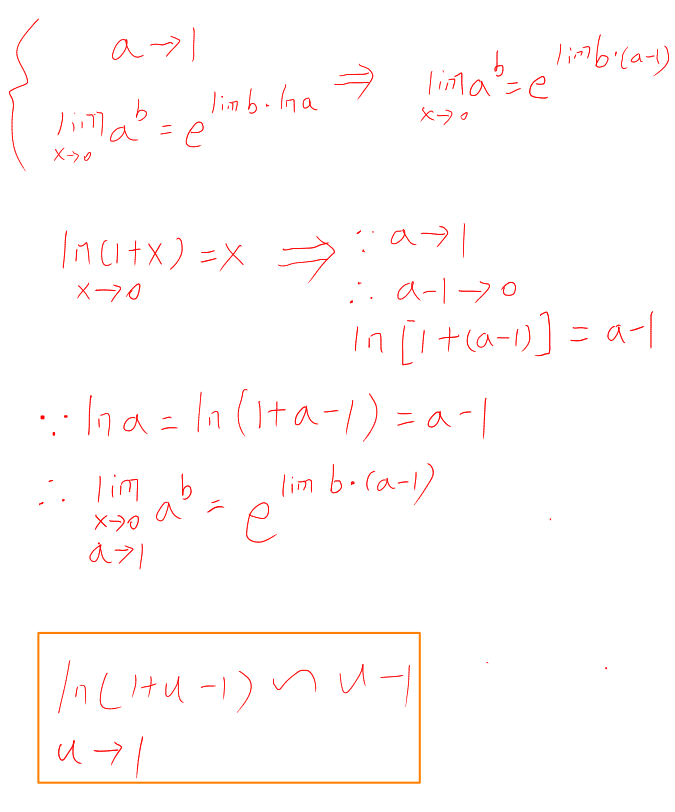 a → 1
lim a^b = e^{lim b · ln a} ⇒ lim a^b = e^{lim b · (a-1)}
x→0 x→0
ln(1+x) = x ⇒ ∵ a → 1
x → 0 ∴ a-1 → 0
ln[1+(a-1)] = a-1
∵ ln a = ln(1+a-1) = a-1
∴ lim a^b = e^{lim b · (a-1)}
x→0
a→1
ln(1+u-1) ∽ u-1
u → 1